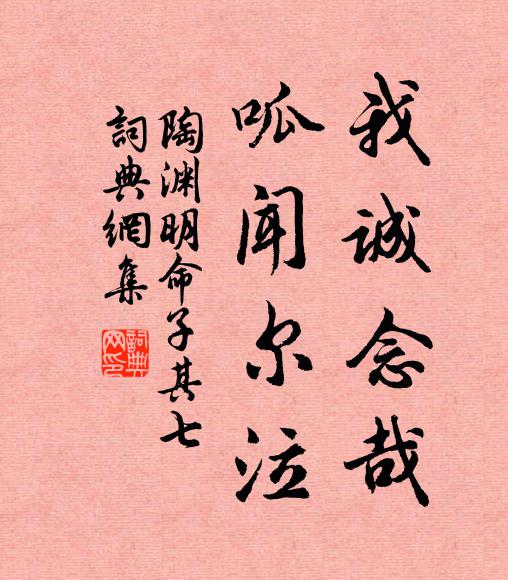 我诚念哉
呱闻尔泣
陶渊明命子其七
词典網集
詞典
网印